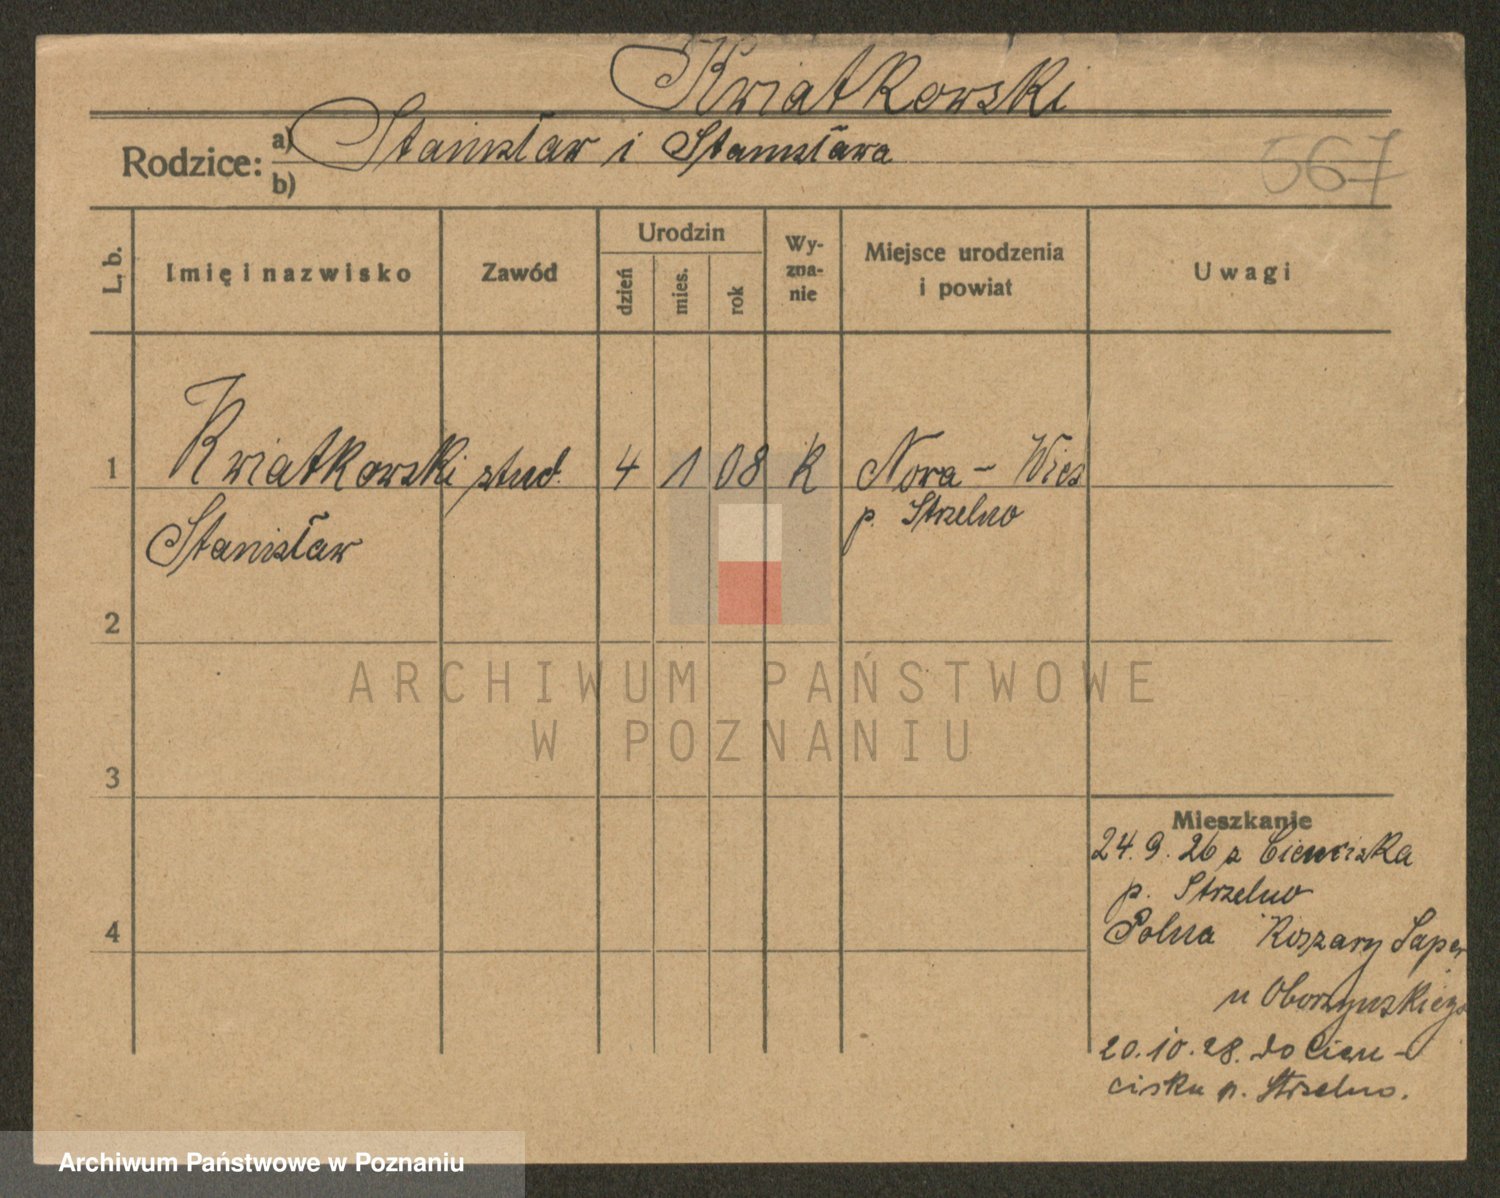 Kwiatkowski
Rodzice: a) Stanisław i Stanisława
b)
567
L. b.
Imię i nazwisko
Zawód
Urodzin
dzień
mies.
rok
Wy-
zna-
nie
Miejsce urodzenia
i powiat
Uwagi
1 Kwiatkowski stud. 4 1 08 K Nowa - Wieś
p. Strzelno
Stanisław
2
ARCHIWUM PAŃSTWOWE
W POZNANIU
3
Mieszkanie
24.9.26 z Cienciska
p. Strzelno
4
Polna Koszary Saper
u Oborzynskiego
20.10.28. do Cien-
ciska p. Strzelno.
Archiwum Państwowe w Poznaniu